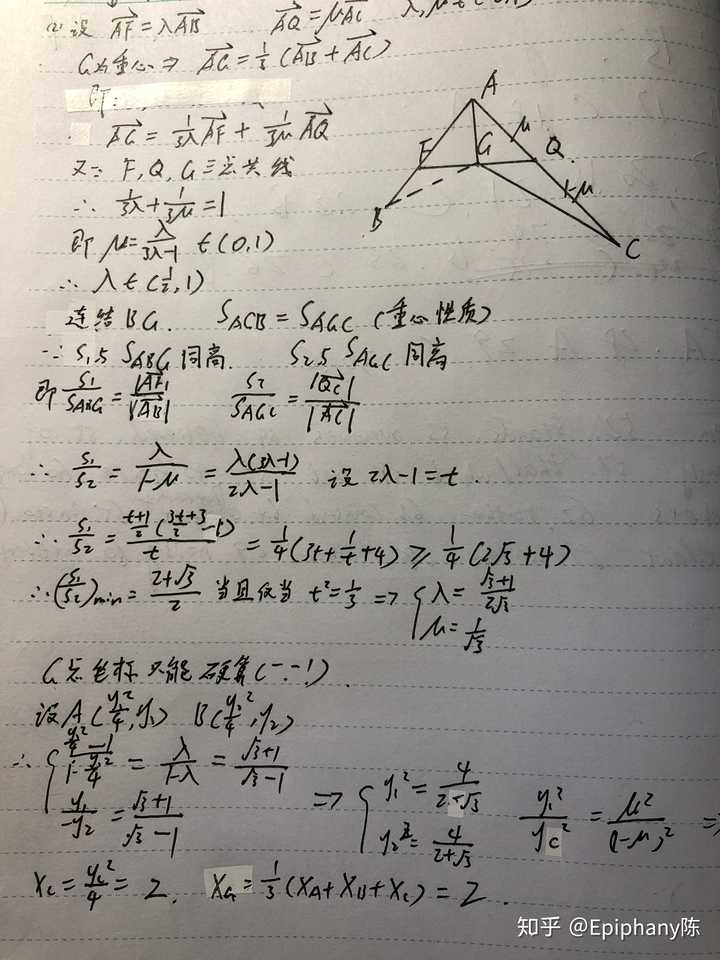 (2) 设 $\overrightarrow{AF}=\lambda\overrightarrow{AB}$ $\overrightarrow{AQ}=\mu\overrightarrow{AC}$
G为重心 ⇒ $\overrightarrow{AG}=\frac{1}{3}(\overrightarrow{AB}+\overrightarrow{AC})$
即:
$\overrightarrow{AG}=\frac{1}{3\lambda}\overrightarrow{AF}+\frac{1}{3\mu}\overrightarrow{AQ}$
又∵ F, Q, G 三点共线
∴ $\frac{1}{3\lambda}+\frac{1}{3\mu}=1$
即 $\mu=\frac{\lambda}{3\lambda-1}$ ∈(0,1)
∴ λ∈($\frac{1}{2}$,1)
A
μ
F
G
Q
1-μ
B
C
连结BG. $S_{ACB}=S_{AGC}$ (重心性质)
∵ $S_1$与$S_{ABG}$同高. $S_2$与$S_{AGC}$同高
即 $\frac{S_1}{S_{ABG}}=\frac{|\overrightarrow{AF}|}{|\overrightarrow{AB}|}$ $\frac{S_2}{S_{AGC}}=\frac{|\overrightarrow{QC}|}{|\overrightarrow{AC}|}$
∴ $\frac{S_1}{S_2}=\frac{\lambda}{1-\mu}=\frac{\lambda(3\lambda-1)}{2\lambda-1}$ 设 2λ-1=t.
∴ $\frac{S_1}{S_2}=\frac{\frac{t+1}{2}(\frac{3t+3}{2}-1)}{t}=\frac{1}{4}(3t+\frac{1}{t}+4)\geq\frac{1}{4}(2\sqrt{3}+4)$
∴ $(\frac{S_1}{S_2})_{min}=\frac{2+\sqrt{3}}{2}$ 当且仅当 $t^2=\frac{1}{3}$ ⇒ { $\lambda=\frac{\sqrt{3}+1}{2\sqrt{3}}$
$\mu=\frac{1}{\sqrt{3}}$
G点坐标只能硬算(-.-!)
设A($\frac{y_1^2}{4},y_1$) B($\frac{y_2^2}{4},y_2$)
∴ { $\frac{\frac{y_1^2}{4}-1}{1-\frac{y_2^2}{4}}=\frac{\lambda}{1-\lambda}=\frac{\sqrt{3}+1}{\sqrt{3}-1}$
$\frac{y_1}{-y_2}=\frac{\sqrt{3}+1}{\sqrt{3}-1}$
⇒ { $y_1^2=\frac{4}{2-\sqrt{3}}$
$y_2^2=\frac{4}{2+\sqrt{3}}$
$\frac{y_1^2}{y_C^2}=\frac{\mu^2}{(1-\mu)^2}$ ⇒
$X_C=\frac{y_C^2}{4}=2$. $X_G=\frac{1}{3}(X_A+X_B+X_C)=2$.
知乎 @Epiphany陈